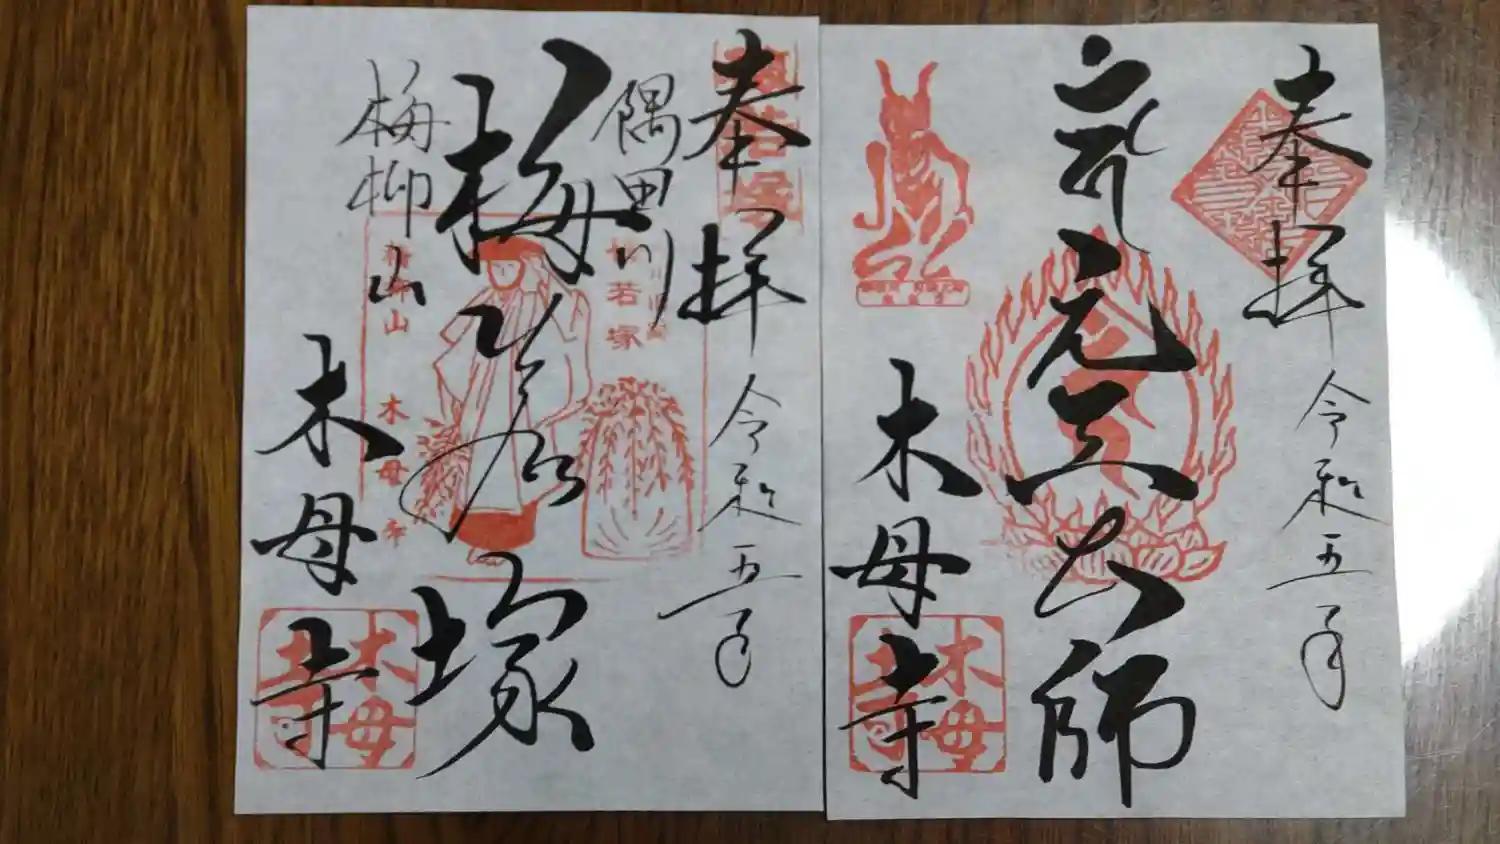 奉拝 令和五年
元三大師
木母寺
木母寺
奉拝 令和五年
隅田川
梅若塚
梅柳山
木母寺
梅若塚
若塚
山 木母寺
木母寺